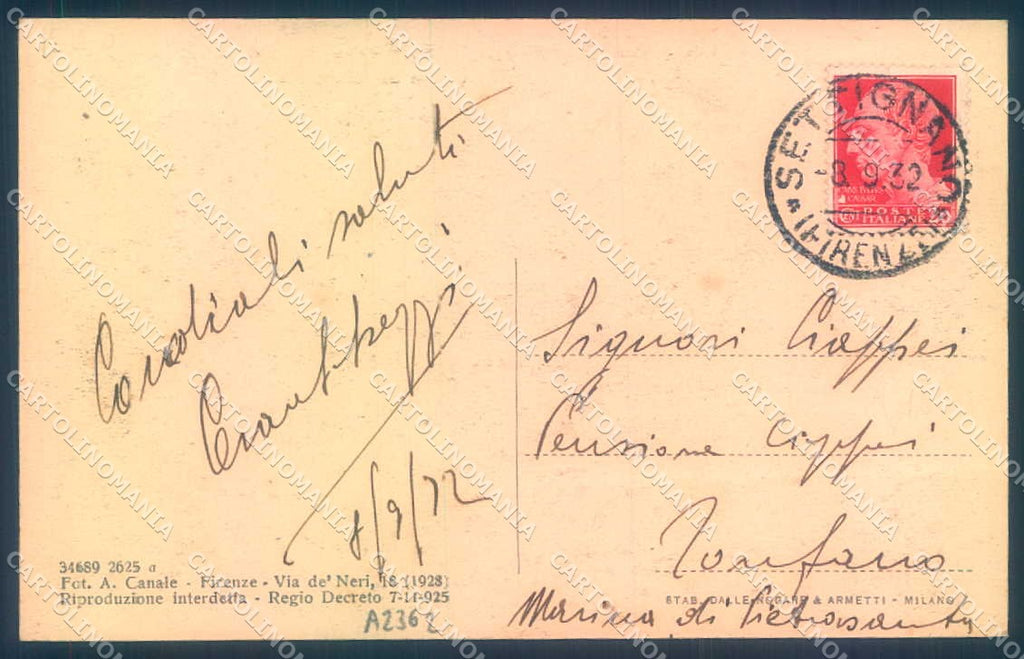 SETTIGNANO
8.9.32
(FIRENZE)
POSTE
ITALIANE
Cordiali saluti
8/9/32
Signori Ciappei
Pensione Ciappei
Tonfano
Marina di Pietrasanta
34689 2625 a
Fot. A. Canale - Firenze - Via de' Neri, 18 (1928)
Riproduzione interdetta - Regio Decreto 7-11-925
STAB. DALLE NOGARE & ARMETTI - MILANO
A2362
CARTOLINOMANIA